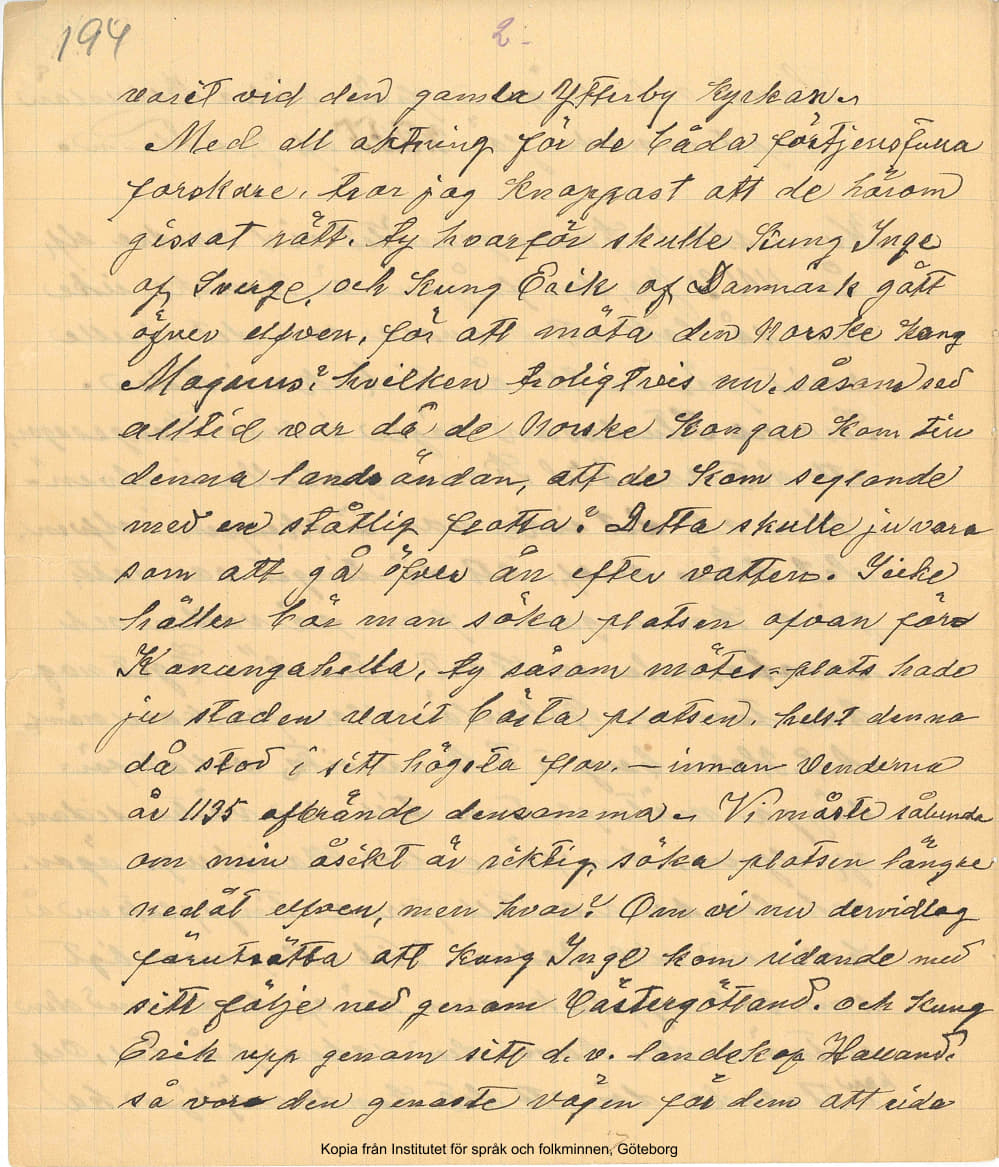 194
2-
varit vid den gamla Ytterby Kyrkan.
Med all aktning för de båda förtjensfulla
forskare, tror jag knappast att de härom
gissat rätt. ty hvarför skulle Kung Inge
af Sverge, och Kung Erik, af Danmark gått
öfver elfven, för att möta den Norske Kong
Magnus? hvilken troligtvis nu, såsom sed
alltid var då de Norske Kongar kom till
denna lands ändan, att de kom seglande
med en ståtlig flotta? Detta skulle ju vara
som att gå öfver ån efter vatten. Icke
häller bör man söka platsen ofvan för
Konungahella, ty såsom mötes-plats hade
ju staden varit bästa platsen, helst denna
då stod i sitt högsta flor. — innan Venderna
år 1135 afbrände densamma. Vi måste sålunda
om min åsikt är riktig, söka platsen längre
nedåt elfven, men hvar? Om vi nu dervidlag
förutsätta att Kung Inge kom ridande med
sitt följe ned genom Västergötland. och Kung
Erik upp genom sitt d. v. landskap Halland.
så vore den genaste vägen för dem att rida
Kopia från Institutet för språk och folkminnen, Göteborg